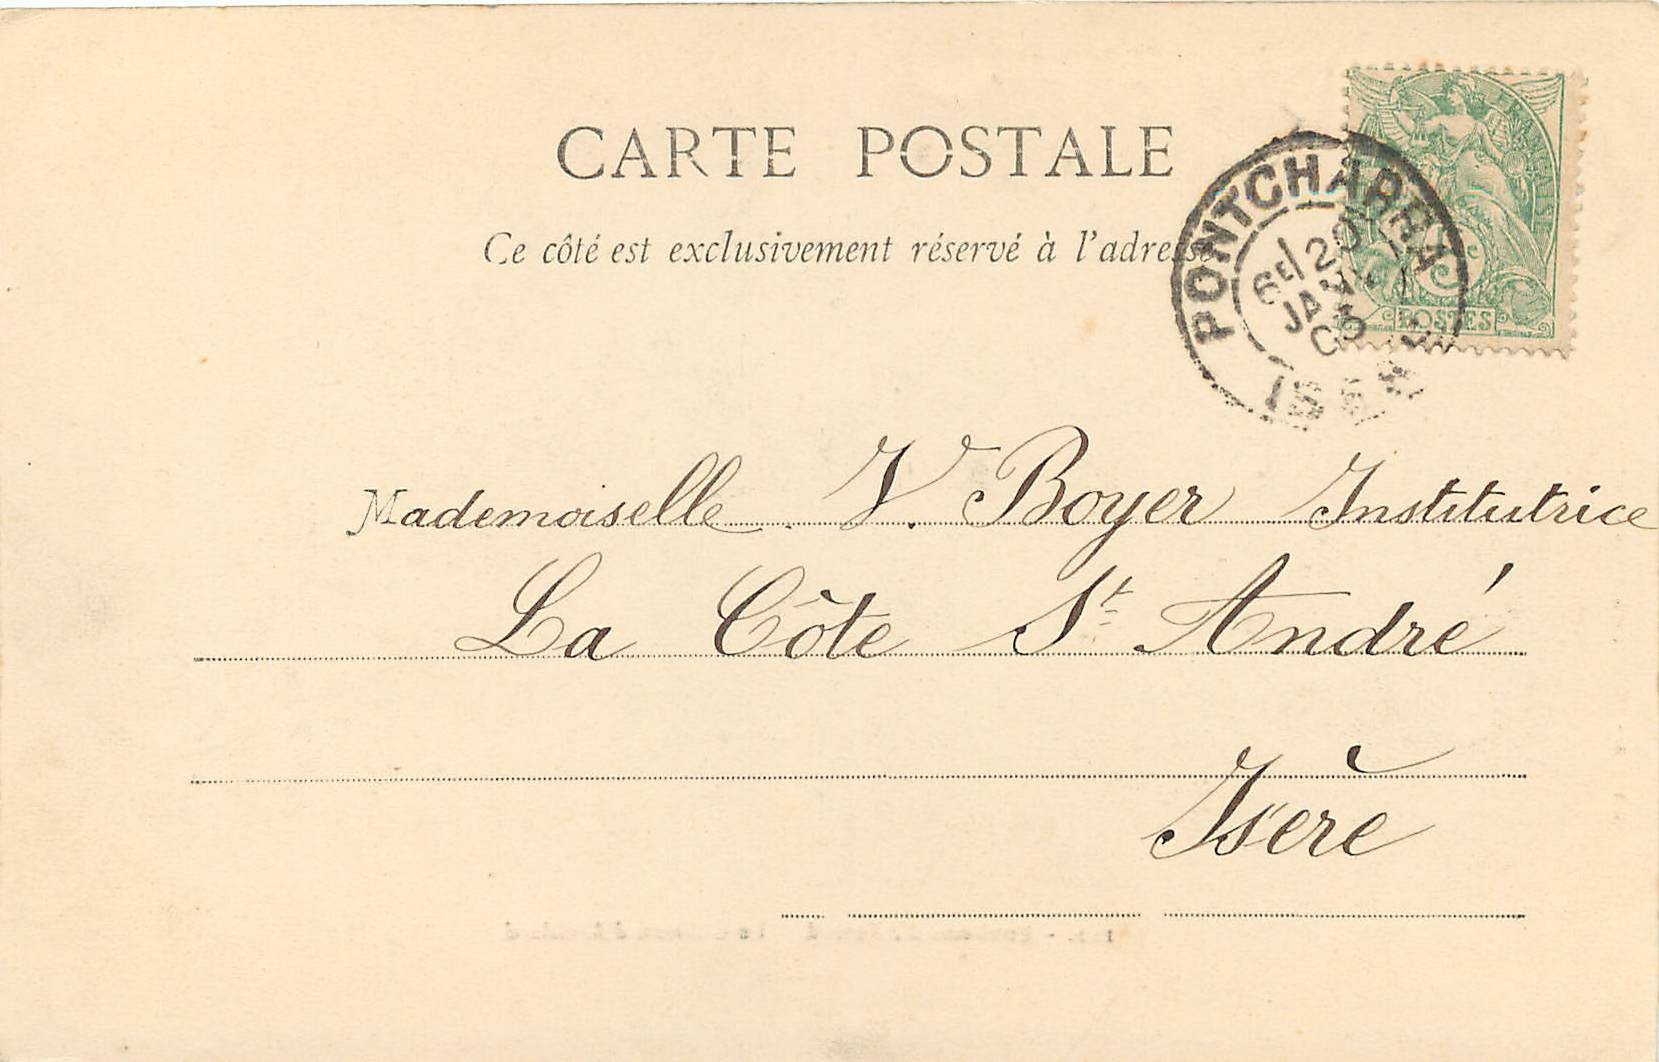 CARTE POSTALE
Ce côté est exclusivement réservé à l'adresse
PONTCHARRA
6E 20
JANV
05
ISÈRE
5c
POSTES
Mademoiselle V. Boyer Institutrice
La Côte St André
Isère